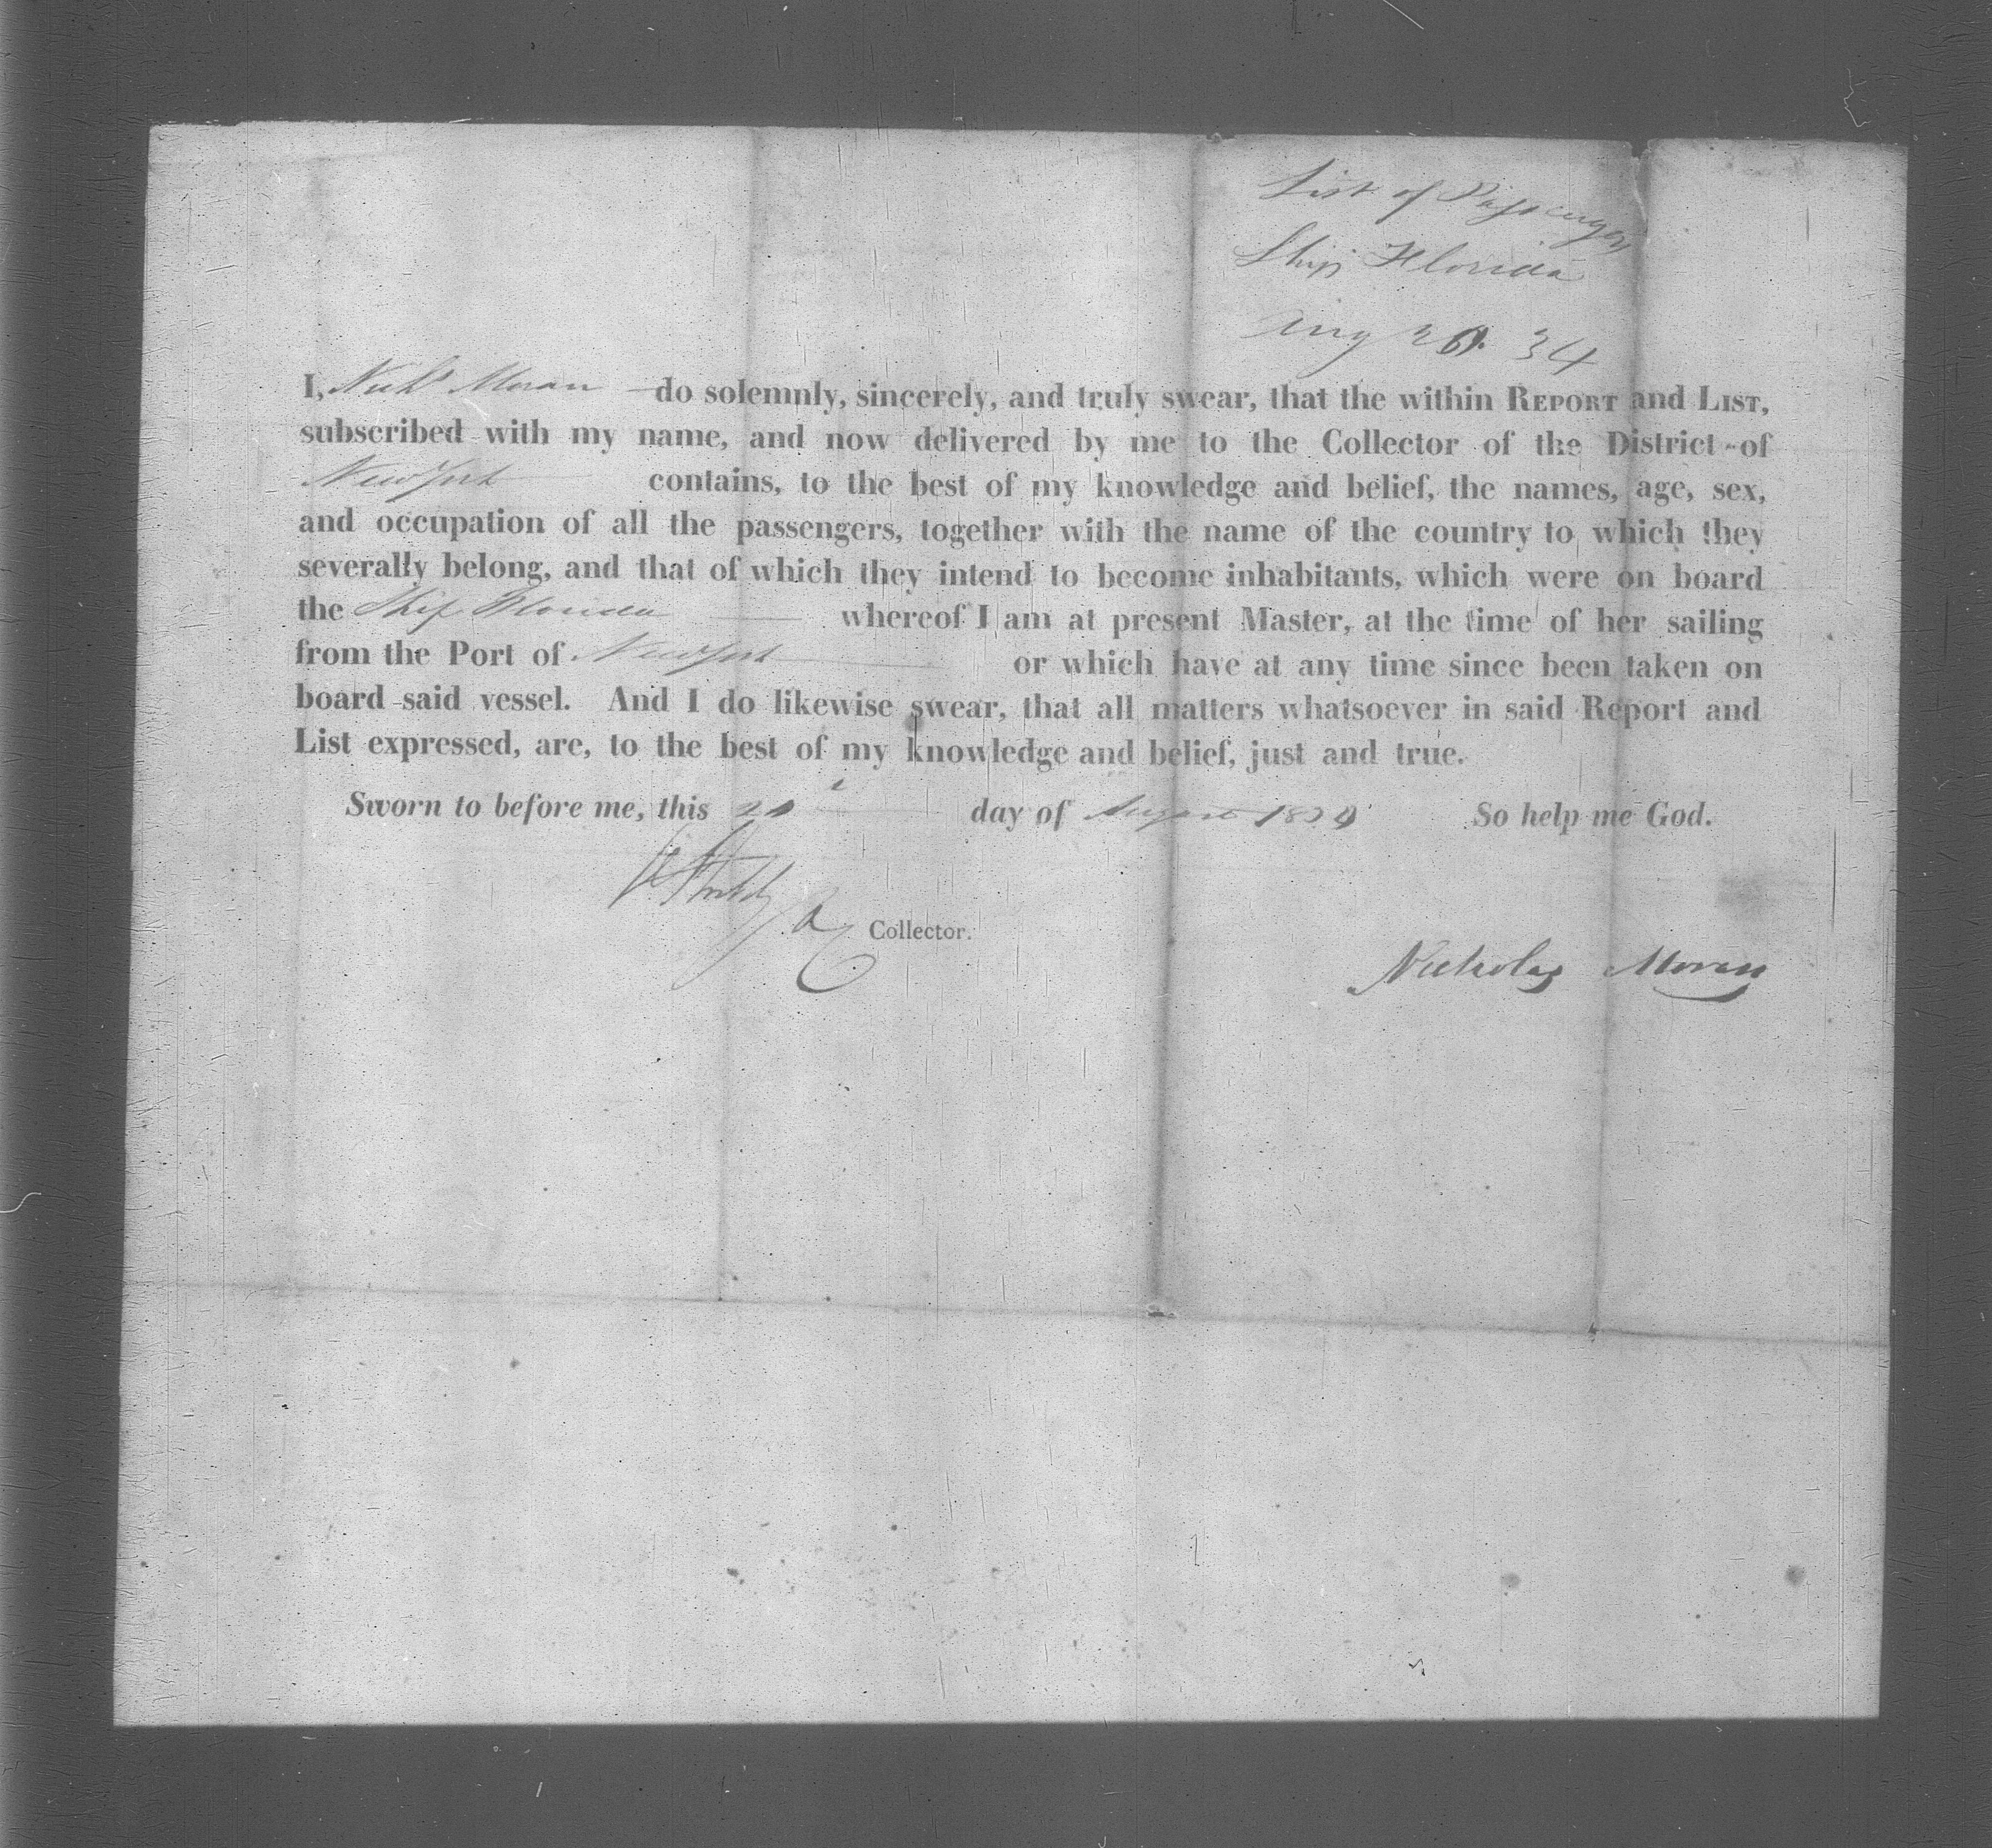 List of Passengers
Ship Florida
Aug 34
I, Nichs Moran do solemnly, sincerely, and truly swear, that the within REPORT and LIST,
subscribed with my name, and now delivered by me to the Collector of the District of
New York contains, to the best of my knowledge and belief, the names, age, sex,
and occupation of all the passengers, together with the name of the country to which they
severally belong, and that of which they intend to become inhabitants, which were on board
the Ship Florida whereof I am at present Master, at the time of her sailing
from the Port of New York or which have at any time since been taken on
board said vessel. And I do likewise swear, that all matters whatsoever in said Report and
List expressed, are, to the best of my knowledge and belief, just and true.
Sworn to before me, this day of August 1834 So help me God.
Collector.
Nicholas Moran